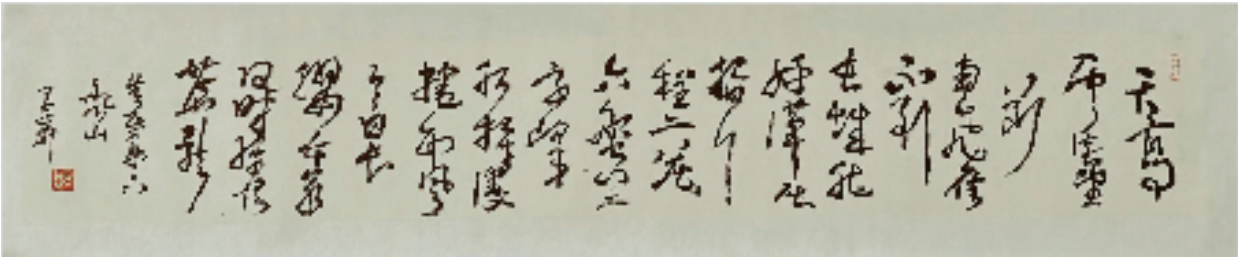 天高
雲淡望
断
南飛雁
不到
长城非
好漢屈
指行
程二萬
六盤山上
高峰
紅旗漫
捲西風
今日长
纓在手
何時縛住
蒼龍
清平樂六
盤山